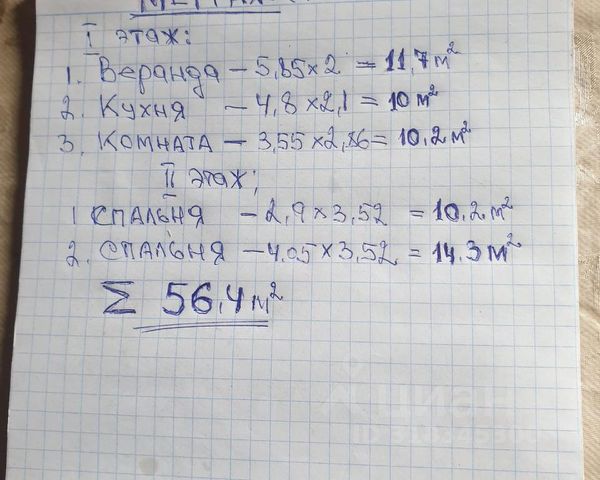 I этаж:
1. Веранда – 5,85×2 = 11,7 м²
2. Кухня – 4,8×2,1 = 10 м²
3. Комната – 3,55×2,86 = 10,2 м²
II этаж;
1 спальня – 2,9×3,52 = 10,2 м²
2. спальня – 4,05×3,52 = 14,3 м²
Σ 56,4 м²